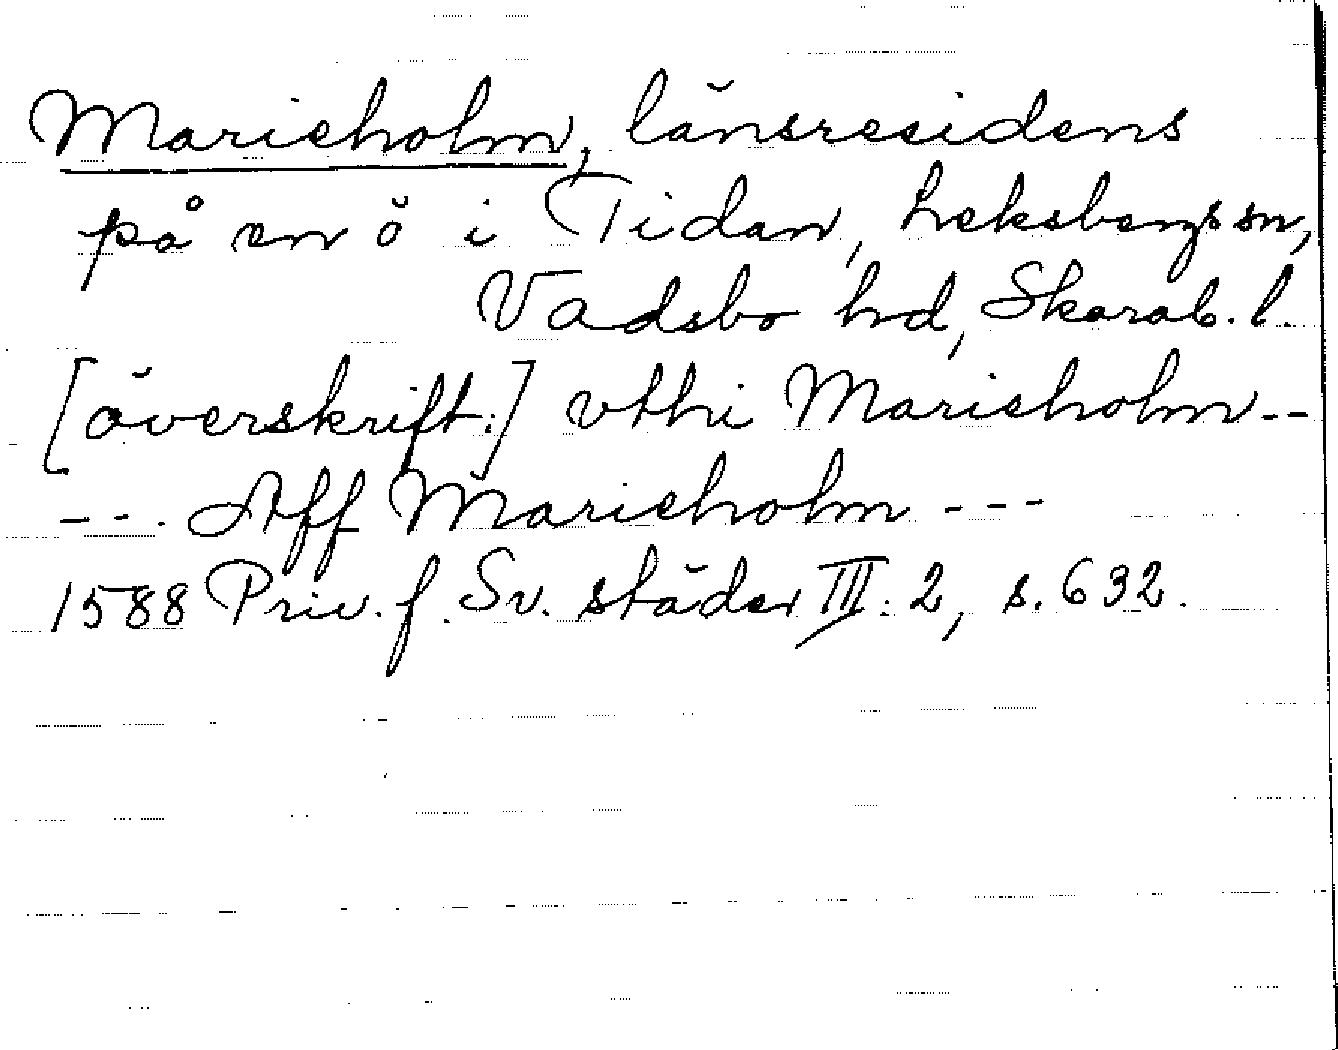 Marieholm, länsresidens
på en ö i Tidan, Leksbergs sn,
Vadsbo hd, Skarab. l.
[överskrift:] vthi Marieholm --
--- Aff Marieholm ---
1588 Priv. f. Sv. städer III. 2, s. 632.